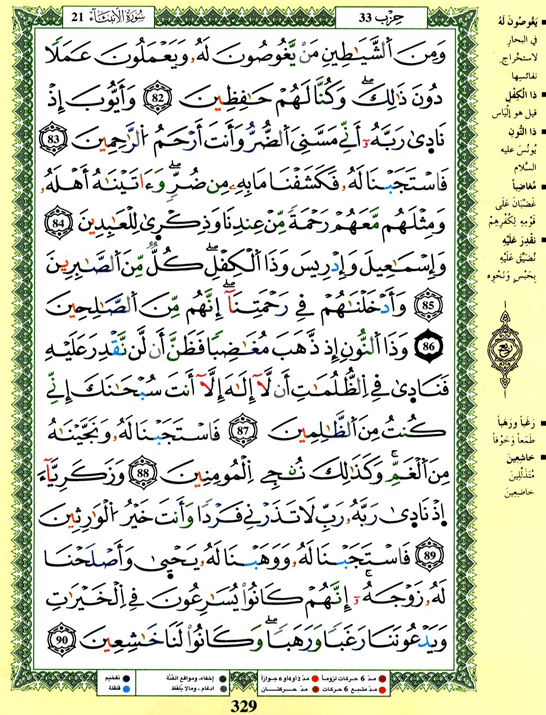 حِزْب 33
سُورَةُ الأَنبِيَاءِ 21
وَمِنَ الشَّيَاطِينِ مَنْ يَّغُوصُونَ لَهُۥ وَيَعْمَلُونَ عَمَلًا
دُونَ ذَٰلِكَ وَكُنَّا لَهُمْ حَٰفِظِينَ 82 وَأَيُّوبَ إِذْ
نَادَىٰ رَبَّهُۥٓ أَنِّے مَسَّنِيَ الضُّرُّ وَأَنتَ أَرْحَمُ الرَّٰحِمِينَ 83
فَاسْتَجَبْنَا لَهُۥ فَكَشَفْنَا مَا بِهِۦ مِن ضُرٍّ وَءَاتَيْنَٰهُ أَهْلَهُۥ
وَمِثْلَهُم مَّعَهُمْ رَحْمَةً مِّنْ عِندِنَا وَذِكْرَىٰ لِلْعَٰبِدِينَ 84
وَإِسْمَٰعِيلَ وَإِدْرِيسَ وَذَا الْكِفْلِ كُلٌّ مِّنَ الصَّٰبِرِينَ
85 وَأَدْخَلْنَٰهُمْ فِے رَحْمَتِنَآ إِنَّهُم مِّنَ الصَّٰلِحِينَ
86 وَذَا النُّونِ إِذ ذَّهَبَ مُغَٰضِبًا فَظَنَّ أَن لَّن نَّقْدِرَ عَلَيْهِ
فَنَادَىٰ فِے الظُّلُمَٰتِ أَن لَّآ إِلَٰهَ إِلَّآ أَنتَ سُبْحَٰنَكَ إِنِّے
كُنتُ مِنَ الظَّٰلِمِينَ 87 فَاسْتَجَبْنَا لَهُۥ وَنَجَّيْنَٰهُ
مِنَ الْغَمِّ وَكَذَٰلِكَ نُـۨجِے الْمُومِنِينَ 88 وَزَكَرِيَّآءَ
اِذْ نَادَىٰ رَبَّهُۥ رَبِّ لَا تَذَرْنِے فَرْدًا وَأَنتَ خَيْرُ الْوَٰرِثِينَ
89 فَاسْتَجَبْنَا لَهُۥ وَوَهَبْنَا لَهُۥ يَحْيَىٰ وَأَصْلَحْنَا
لَهُۥ زَوْجَهُۥٓ إِنَّهُمْ كَانُواْ يُسَٰرِعُونَ فِے الْخَيْرَٰتِ
وَيَدْعُونَنَا رَغَبًا وَرَهَبًا وَكَانُواْ لَنَا خَٰشِعِينَ 90
يَغُوصُونَ لَهُ
في البحار
لاستخراج
نفائسها
ذا الكِفْلِ
قيل هو إلياس
ذا النُّون
يُونُسَ عليه
السَّلام
مُغَاضِباً
غَضْبَانَ عَلَى
قَوْمِهِ لِكُفْرِهِمْ
نَقْدِرَ عَلَيْهِ
نُضَيِّقَ عَلَيْهِ
بِحَبْسٍ وَنَحْوِهِ
رَغَباً ورَهَباً
طَمَعاً وخَوْفاً
خَاشِعِينَ
مُتَذَلِّلِينَ
خاضِعِينَ
مدّ 6 حركات لزوماً مدّ 2 أو 4 أو 6 جوازاً إخفاء، ومواقع الغُنَّة تفخيم
مدّ مشبع 6 حركات مدّ حركتان إدغام، وما لا يُلفظ قلقلة
329